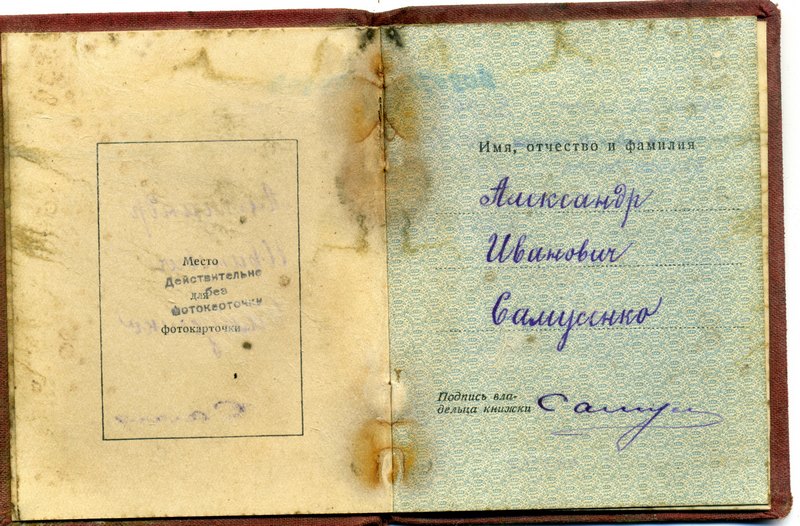 Место
Действительно
для без
фотокарточки
фотокарточки
Имя, отчество и фамилия
Александр
Иванович
Самусенко
Подпись вла-
дельца книжки